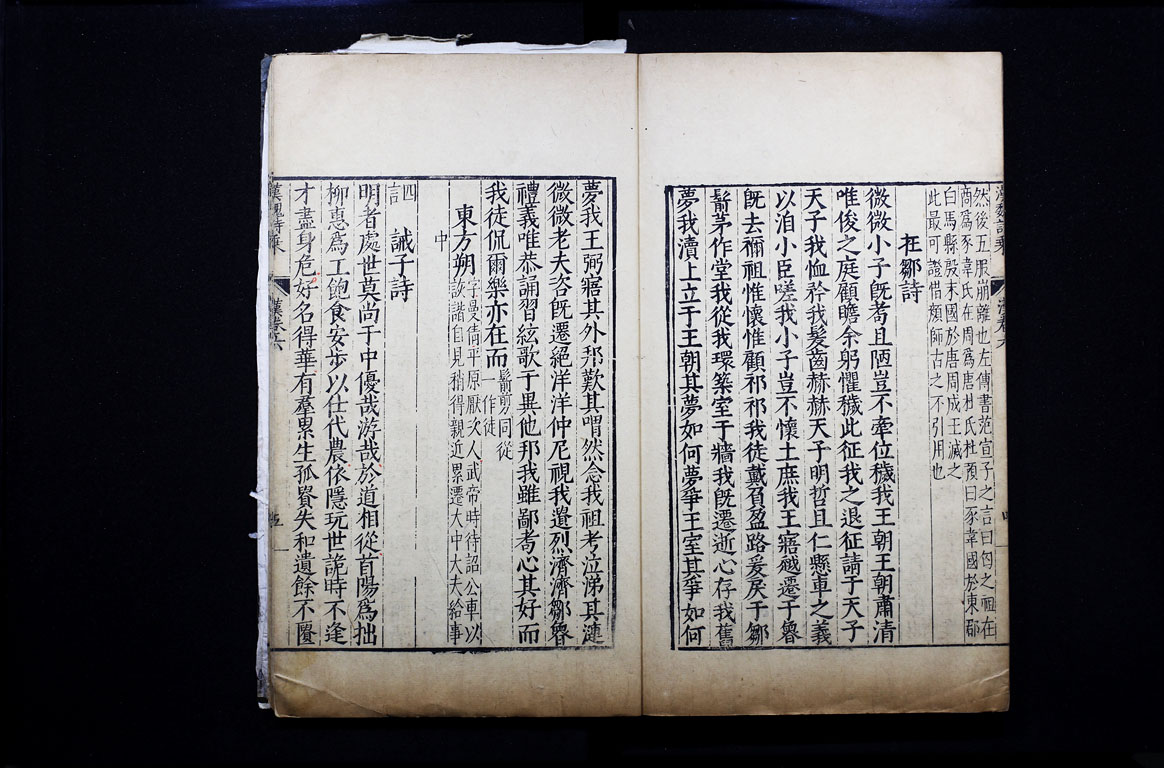 漢魏詩乘 漢卷六 四
然後五服崩離也左傳書范宣子之言曰匄之祖在
商爲豕韋氏在周爲唐杜氏杜預曰豕韋國於東郡
白馬縣殷末國於唐周成王滅之
此最可證惜顏師古之不引用也
在鄒詩
微微小子旣耉且陋豈不牽位穢我王朝王朝肅清
唯俊之庭顧瞻余躬懼穢此征我之退征請于天子
天子我恤矜我髮齒赫赫天子明哲且仁縣車之義
以洎小臣嗟我小子豈不懷土庶我王寤越遷于魯
旣去禰祖惟懷惟顧祁祁我徒戴負盈路爰戾于鄒
鬋茅作堂我徒我環築室于牆我旣遷逝心存我舊
夢我瀆上立于王朝其夢如何夢爭王室其爭如何
夢我王弼寤其外邦歎其喟然念我祖考泣涕其漣
微微老夫咨旣遷絕洋洋仲尼視我遺烈濟濟鄒魯
禮義唯恭誦習絃歌于異他邦我雖鄙耉心其好而
我徒侃爾樂亦在而
鬋剪同從
一作徒
東方朔
字曼倩平原厭次人武帝時待詔公車以
詼諧自見稍得親近累遷大中大夫給事
中
四言
誡子詩
明者處世莫尚于中優哉游哉於道相從首陽爲拙
柳惠爲工飽食安步以仕代農依隱玩世詭時不逢
才盡身危好名得華有羣累生孤貴失和遺餘不匱
漢魏詩乘 漢卷六 五